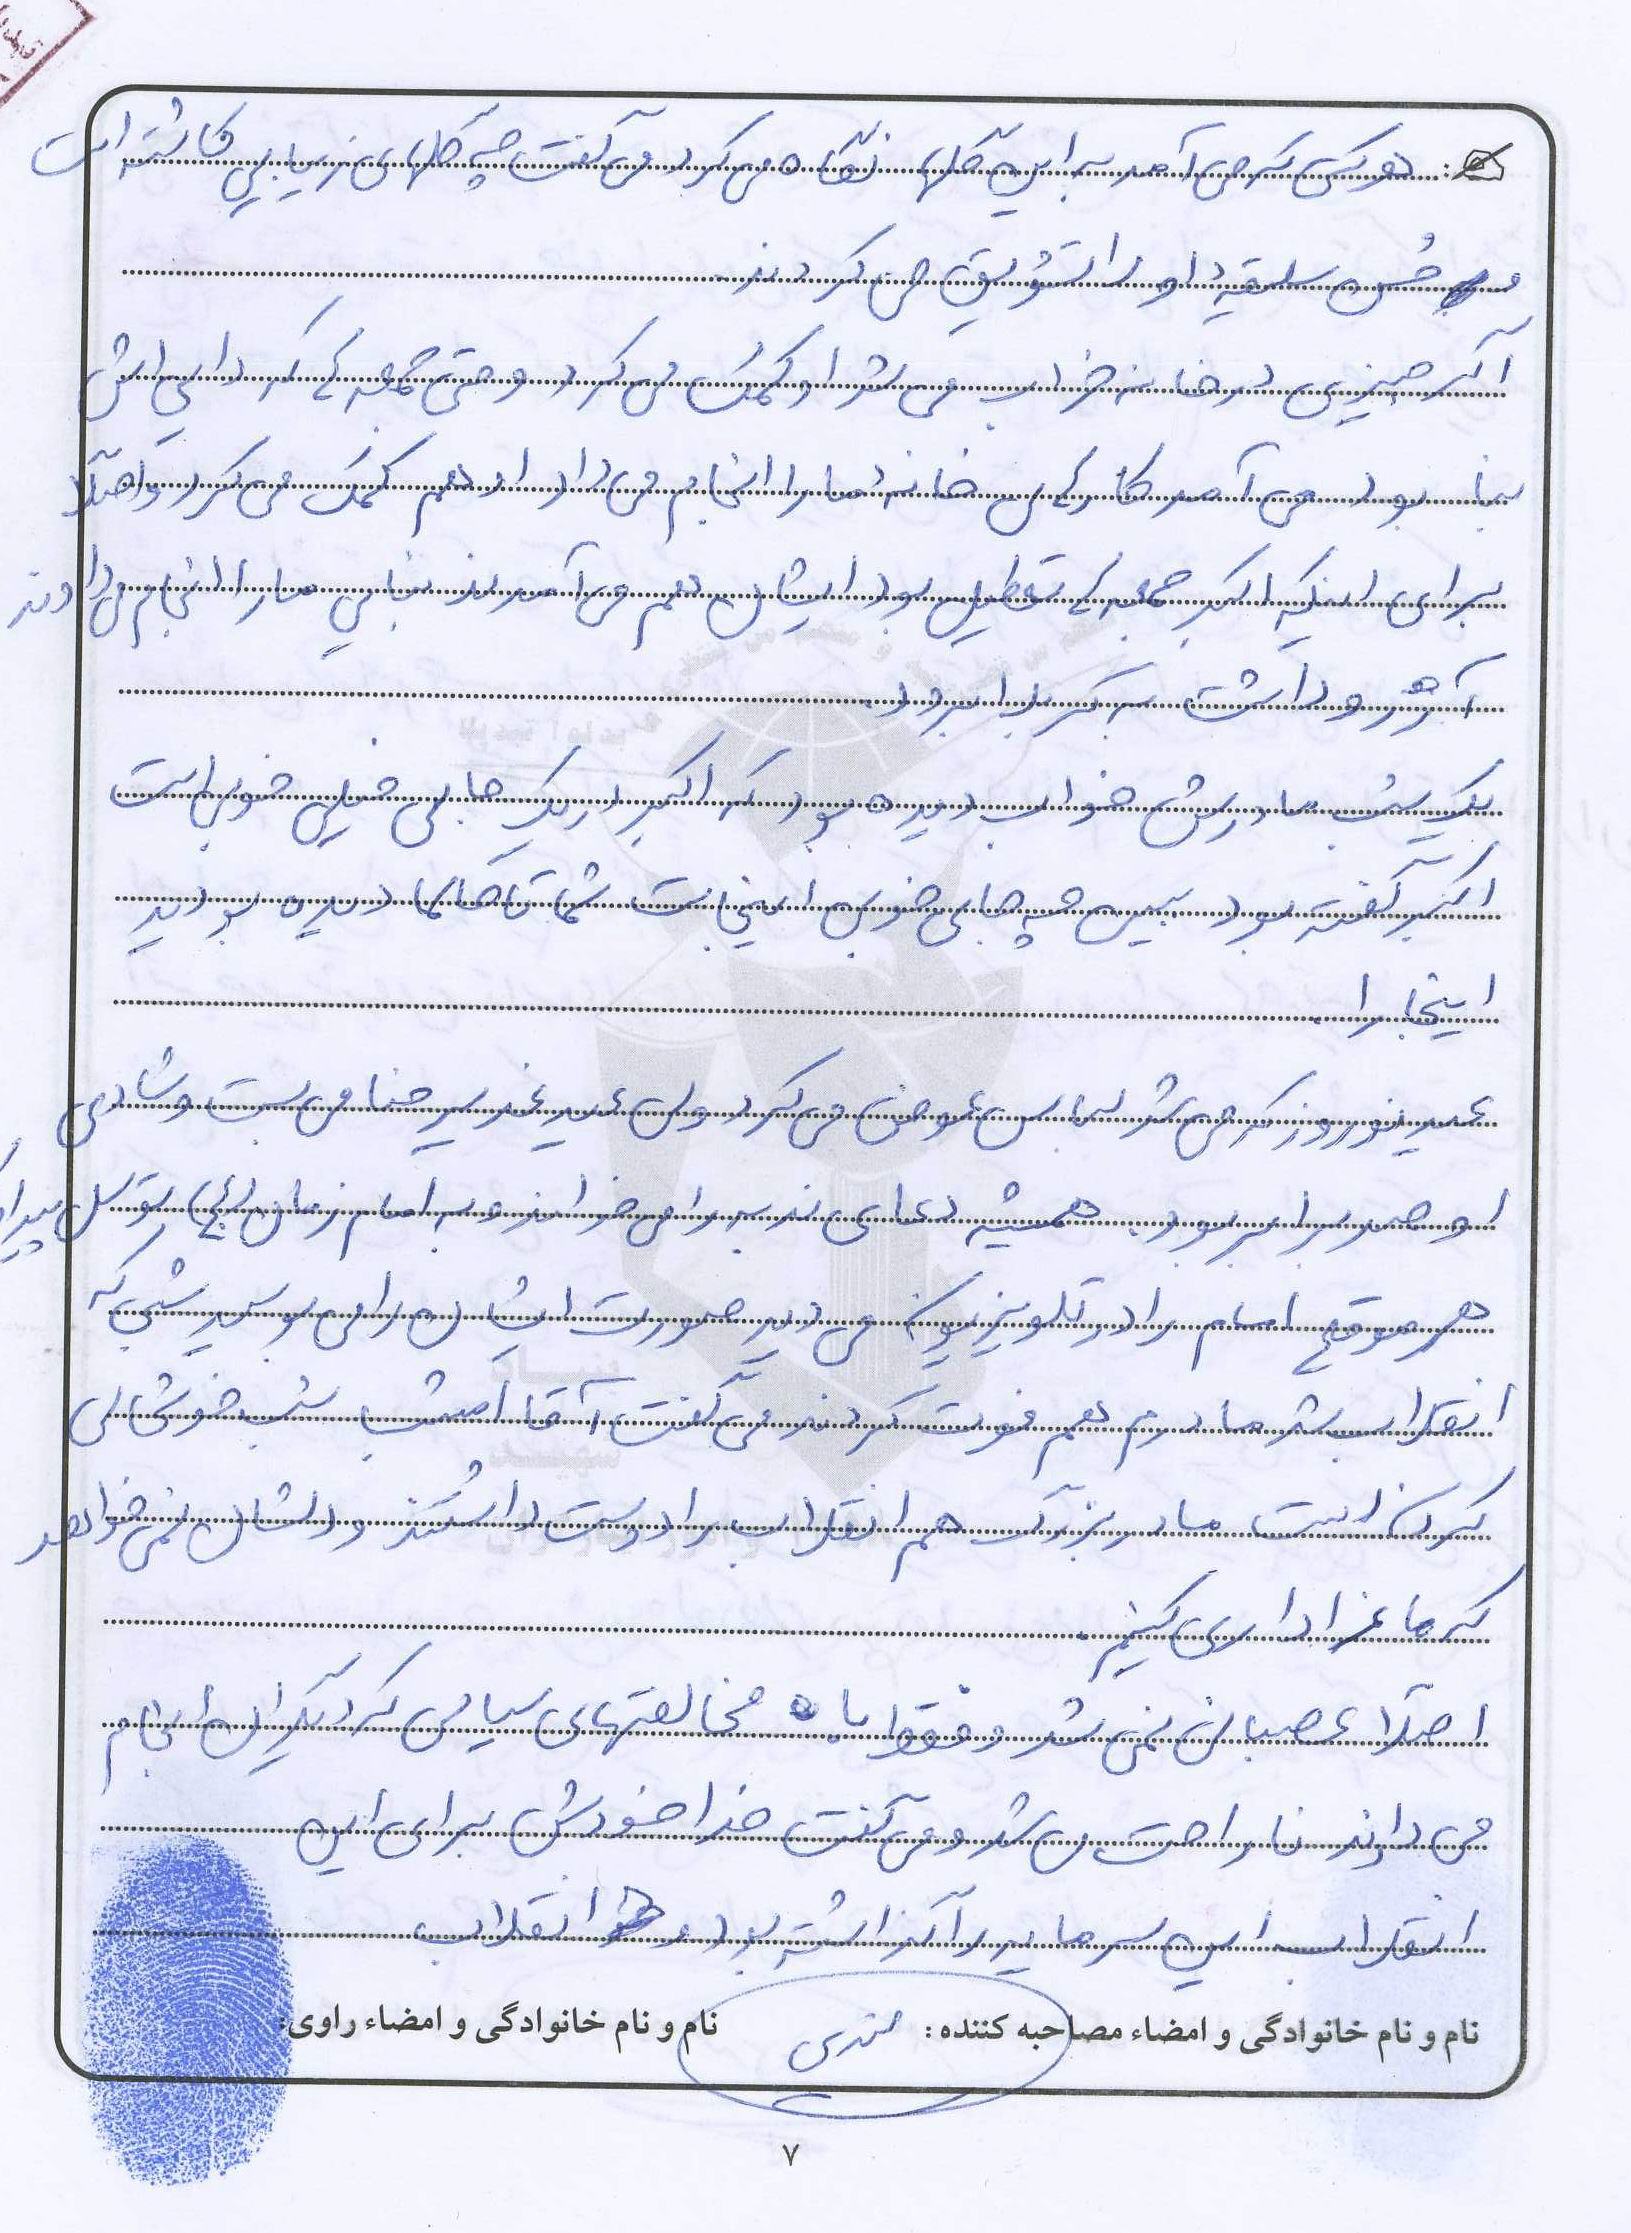 هر کس که می آمد به این گلها نگاه می کرد می گفت چه گلهای زیبایی کاشته است
و حُسن سلیقهٔ او را تشویق می کردند.
اگر چیزی در خانه خراب می شد او کمک می کرد و حتی جمعه ها که دایی اش
بنا بود می آمد کارهای خانهٔ ما را انجام می داد او هم کمک می کرد و اصلاً
برای اینکه اکبر جمعه ها تعطیل بود ایشان هم می آمدند بنایی ما را انجام می دادند
آرزو داشت به کربلا برود.
یک شب مادرش خواب دیده بود که اکبر در یک جایی خیلی خوبی است
اکبر گفته بود ببین چه جای خوبی اینجاست شما تا حالا دیده بودید
اینجا را.
عید نوروز که می شد لباس عوض می کرد ولی عید غدیر حنا می بست و شادی
او صد برابر بود. همیشه دعای ندبه را می خواند و به امام زمان (عج) توسل پیدا
هر موقع امام را در تلویزیون می دید صورت ایشان را می بوسید شبی که
انقلاب شد مادرم هم فوت کردند می گفت آقا امشب شب خوشحالی
کردن است مادربزرگ هم انقلاب را دوست داشتند و دلشان نمی خواهد
که ما عزاداری کنیم.
اصلاً عصبانی نمی شد و فقط با مخالفتهای سیاسی که دیگران انجام
می دادند ناراحت می شد و می گفت خدا خودش برای این
انقلاب این سرمایه را گذاشته بود و انقلاب
نام و نام خانوادگی و امضاء مصاحبه کننده: نام و نام خانوادگی و امضاء راوی:
۷